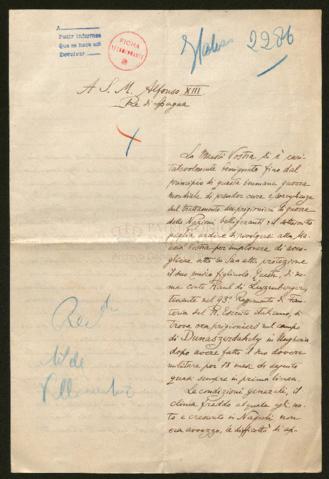 A
Pedir informes
Que se haga saber
Devolver
FICHA
Italiano 2286
A S. M. Alfonso XIII
Re di Spagna
La Maestà Vostra si è cari-
tatevolmente benignata fino dal
principio di questa inumana guerra
mondiale di prender cura e sorveglianza
sul trattamento dei prigionieri di guerra
delle Nazioni belligeranti e il sottoscritto
piglia ardire di rivolgersi alla
Vostra per implorare di acco-
gliere sotto la Sua alta protezione
il suo unico figliuolo. Questi, di no-
me conte Raul di Luxemberger,
tenente nel 43° Reggimento di Fan-
teria del R. Esercito italiano, si
trova ora prigioniero nel campo
di Dunaszerdahely in Ungheria
dopo avere fatto il suo dovere
militare per 18 mesi di seguito
quasi sempre in prima linea.
Le condizioni generali, il
clima freddo al quale egli, na-
to e cresciuto in Napoli non
era avvezzo, le difficoltà di ap-